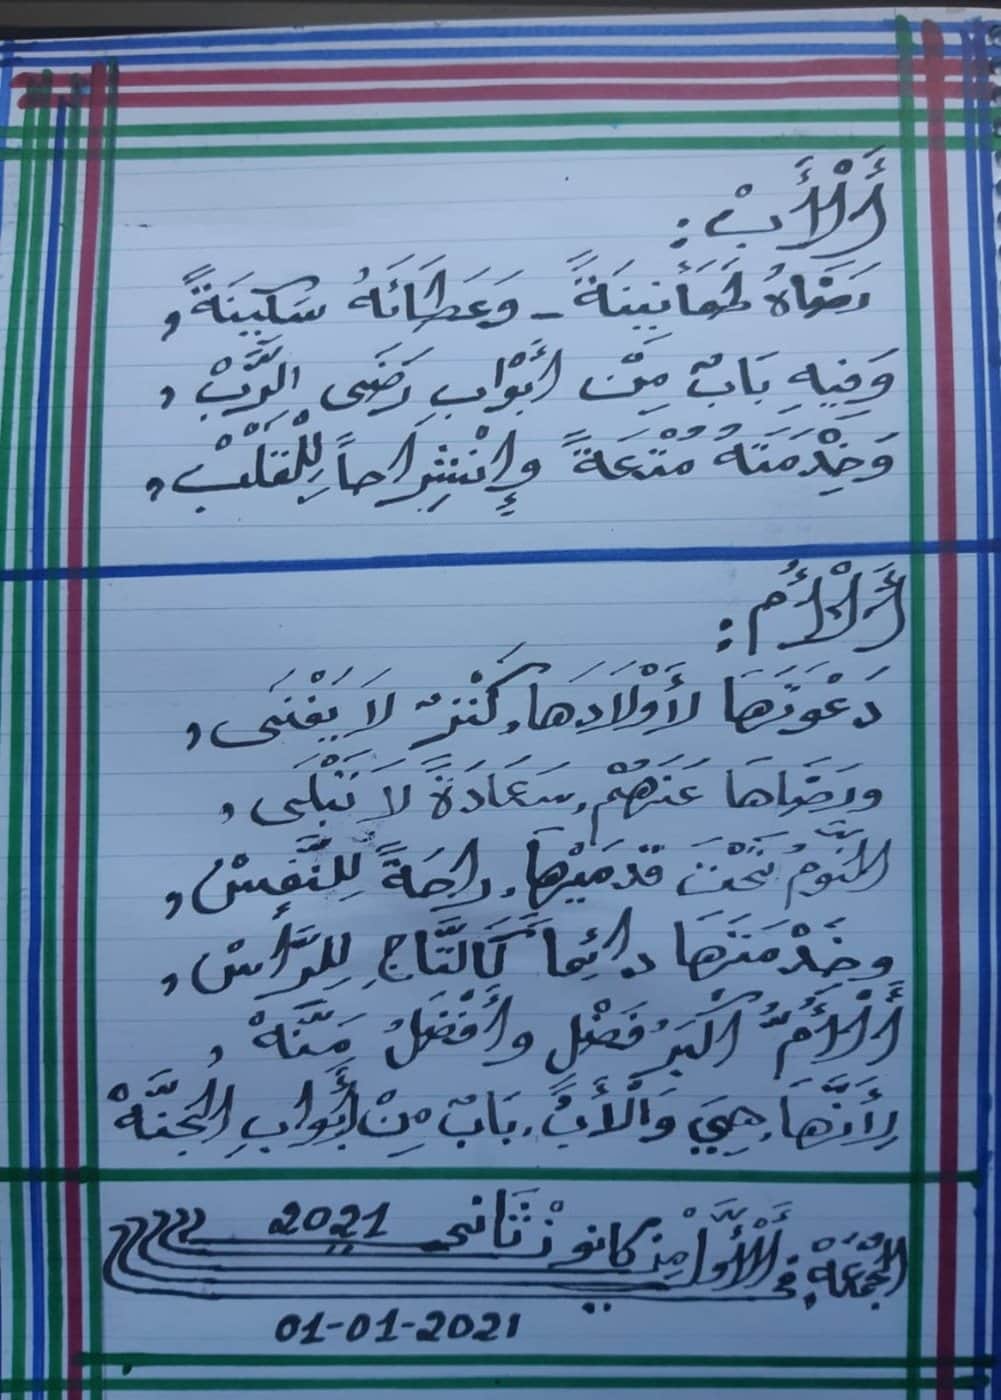 أَلْأَبْ :
رَضَاهُ طَمَأْنِينَةً - وَعَطَائَهُ سَكِينَةً ,
وَفِيهِ بَابٌ مِنْ أَبْوَابِ رَضَى الرَّبْ ,
وَخِدْمَتَهُ مُتْعَةً وَإِنْشِرَاحاً لِلْقَلْبْ ,
أَلْأُم :
دَعْوَتَهَا لأَوْلَادَهَا, كَنْزٌ لَا يَفْنَى ,
ورَضَاهَا عَنْهُمْ, سَعَادَةً لَا تَبْلَى ,
النَّوْمُ تَحْتَ قَدَمَيْهَا, رَاحَةً لِلنَّفْسْ ,
وخِدْمَتَهَا دائِماً كَالتَّاجِ لِلرَّأْسْ ,
أَلْأُمُّ اكْبَرُ فَضْلٍ وأَفْضَلُ مَنَّهْ ,
لِأَنَّهَا, هِيَ وَالْأَبُ, بَابٌ مِنْ أَبْوابِ الجَنَّهْ
الْجُمْعَهْ في أَلْأَوَّلْ مِنْ كانونْ ثَانى 2021
01-01-2021